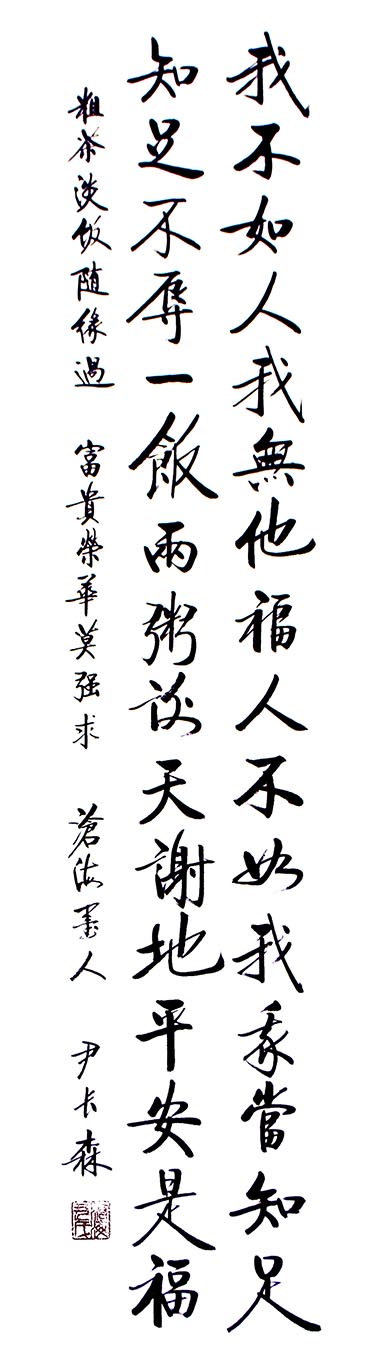 我不如人我無他福人不如我我當知足
知足不辱一飯兩粥谢天謝地平安是福
粗茶淡饭随緣過 富貴榮華莫强求 滄海墨人 尹长森